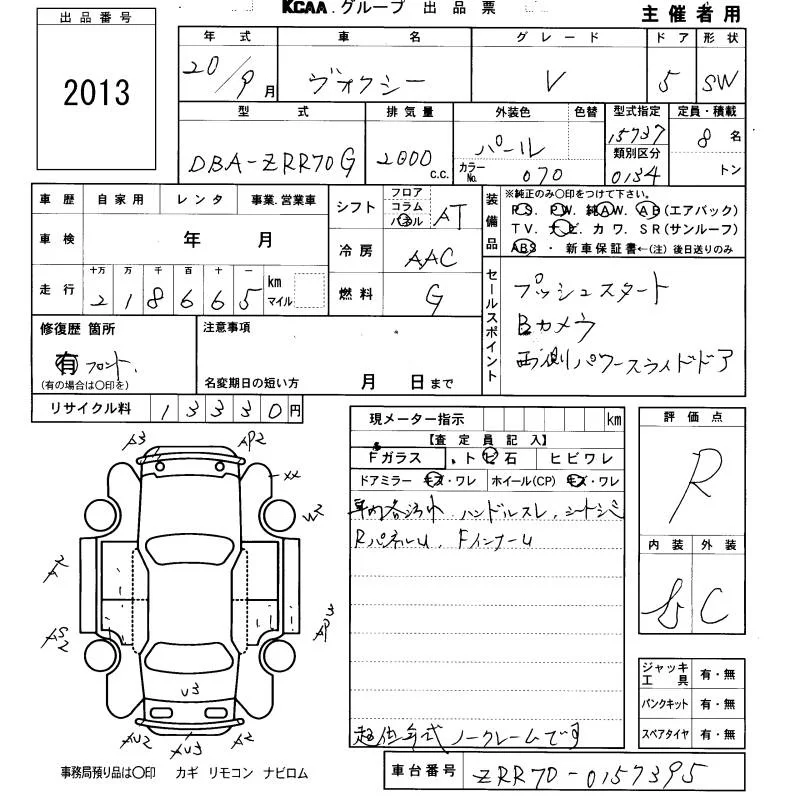 出品番号
2013
KCAA.グループ 出品票
主催者用
年式 車名 グレード ドア 形状
20/9月 ヴォクシー V 5 SW
型式 排気量 外装色 色替 型式指定 定員・積載
DBA-ZRR70G 2000c.c. パール 15737 8名
カラーNo. 070 類別区分 0134 トン
車歴 自家用 レンタ 事業.営業車
車検 年 月
走行 十万 万 千 百 十 一
218665 km マイル
シフト フロア コラム パネル AT
冷房 AAC
燃料 G
装備品
※純正のみ○印をつけて下さい。
PS. PW. 純AW. AB(エアバック)
TV. ナビ. カワ. SR(サンルーフ)
ABS ・ 新車保証書←(注)後日送りのみ
セールスポイント
プッシュスタート
Bカメラ
両側パワースライドドア
修復歴 箇所
有 フロント.
(有の場合は○印を)
注意事項
名変期日の短い方 月 日まで
リサイクル料 13330円
現メーター指示 km
【査定員記入】
Fガラス .トビ石 ヒビワレ
ドアミラー キズ・ワレ ホイール(CP) キズ・ワレ
車内各汚れ. ハンドルスレ. シートシミ
Rパネルu. Fインナーu
超低年式 ノークレームです
評価点
R
内装 外装
C
ジャッキ工具 有・無
パンクキット 有・無
スペアタイヤ 有・無
A3 AP2
XX
W2
U3
AU2 XU3 A2
事務局預り品は○印 カギ リモコン ナビロム
車台番号 ZRR70-0157395